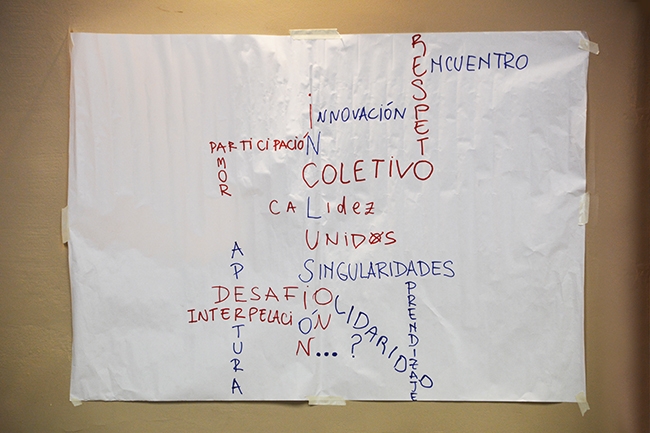 RESPETO
ENCUENTRO
iNCLUSIÓN
iNNOVACIÓN
PARTICIPACIÓN
AMOR
COLETIVO
CALidez
UNIDXS
SINGULARIDADES
APERTURA
DESAFIO
SOLIDARIDO
APRENDIZAJE
INTERPELACIÓN
... ?